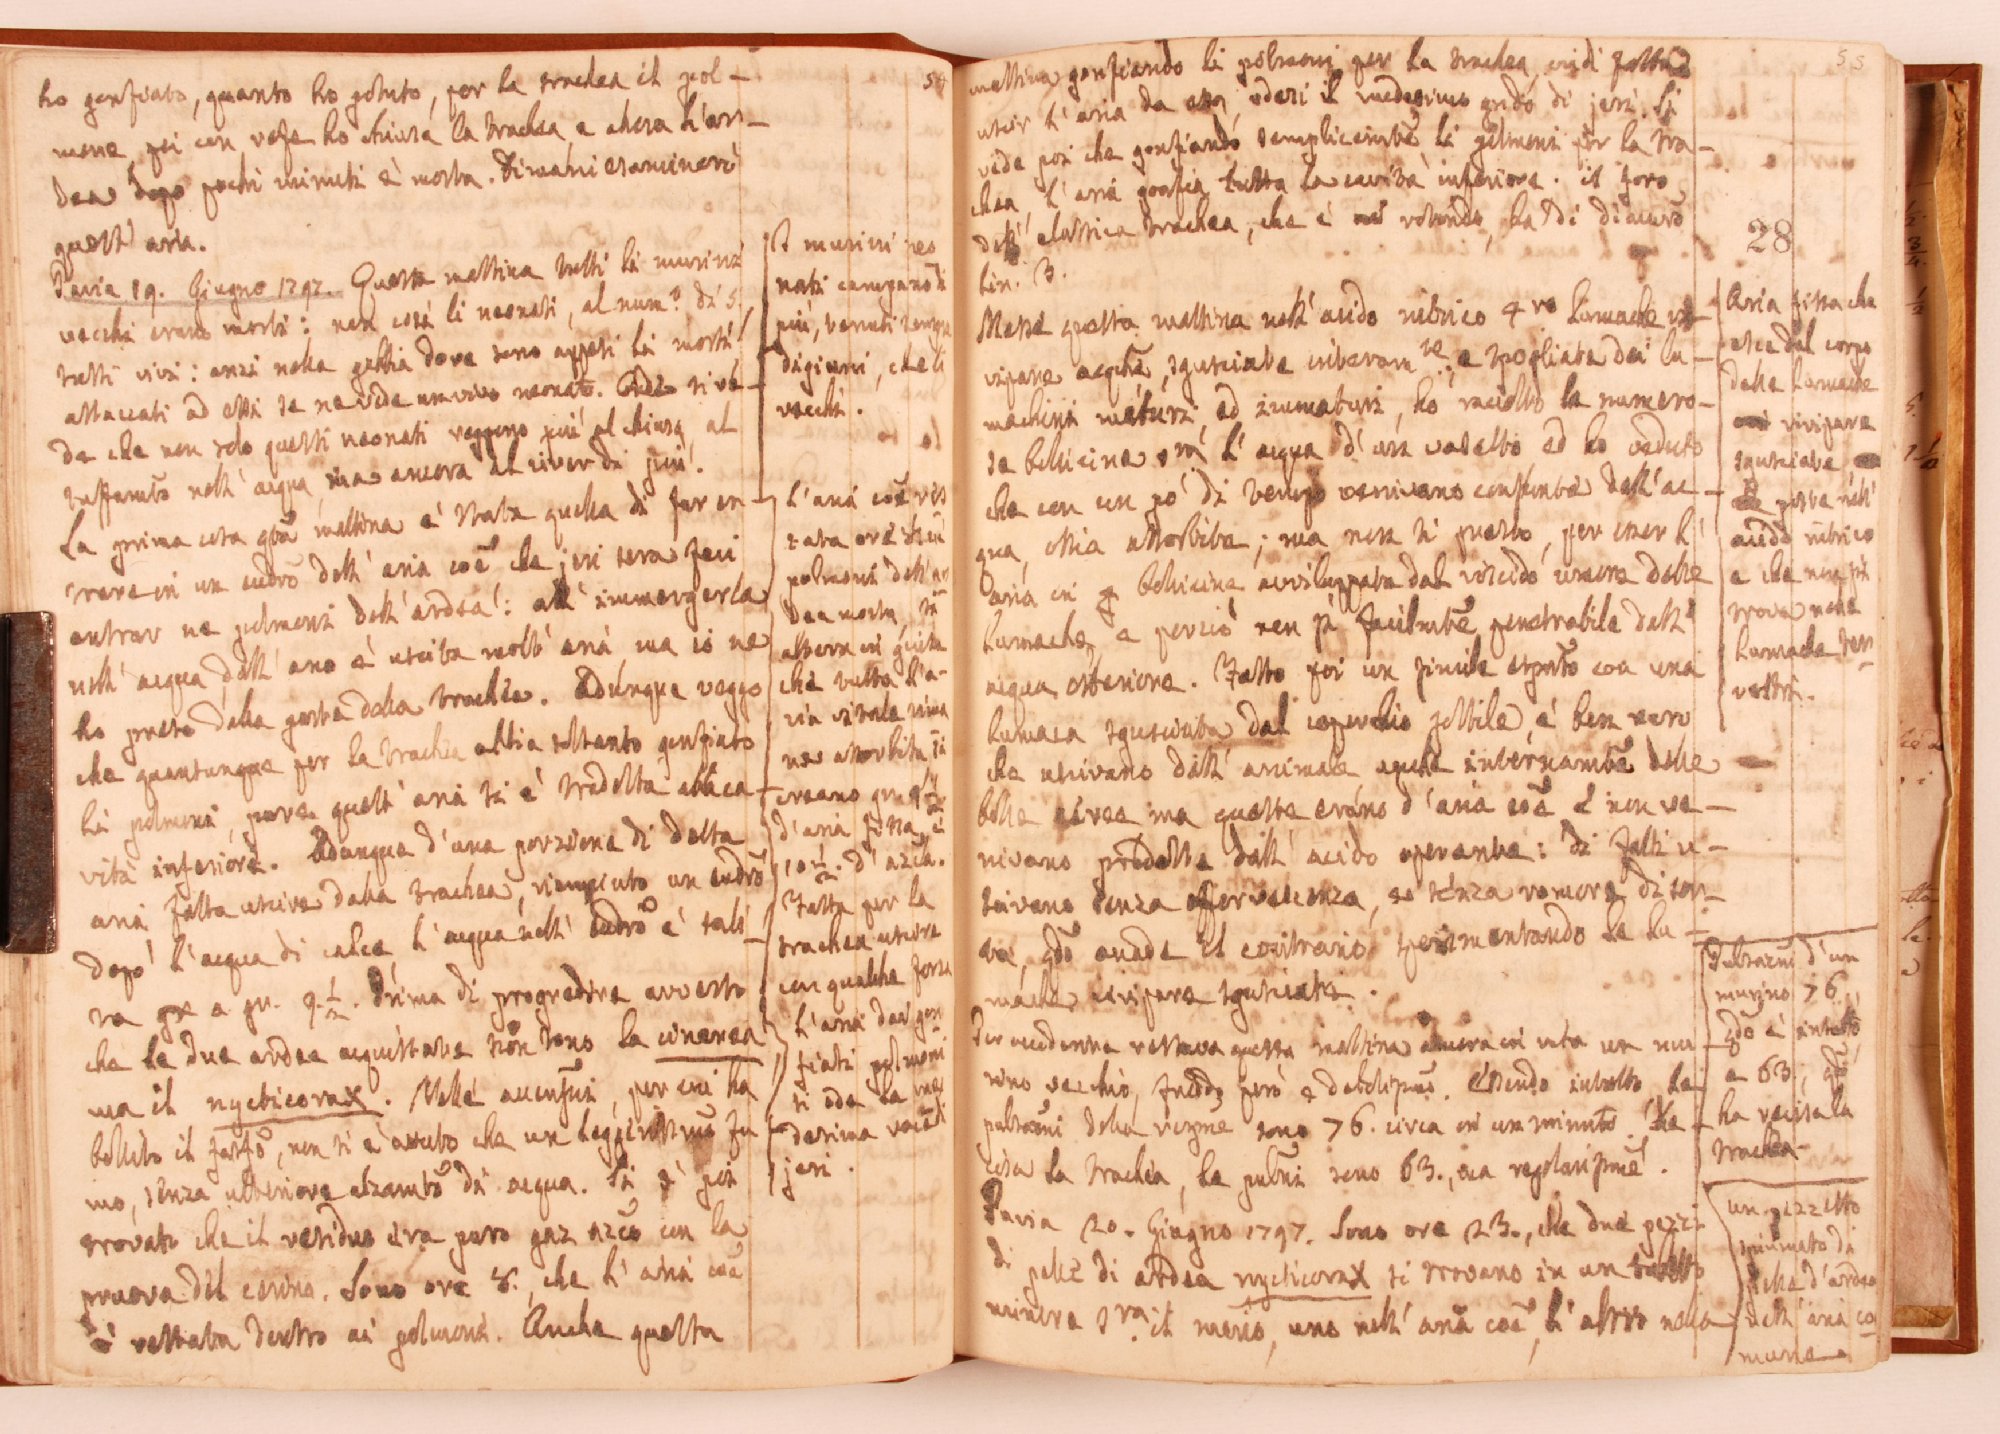 54
ho gonfiato, quanto ho potuto, per la trachea il pol-
mone, poi con refe ho chiusa la trachea, e chesa l'ar-
dea dopo pochi minuti è morta. Dimani esaminerò
quest' aria.
Pavia 19. Giugno 1797. Questa mattina tutti li murini
vecchi erano morti: non così li neonati, al num.º di 5,
tutti vivi: anzi nella gabbia dove sono appesi li morti,
attaccati ad essi se ne vide un vivo neonato. si ve-
de che non solo questi neonati reggono più al chiuso, al
tuffamto nell' acqua, ma ancora al viver di più.
La prima cosa qta mattina è stata quella di far en-
trare in un eudro dell' aria coe che jeri sera feci
entrar ne polmoni dell' ardea: all' immergerla
nell' acqua, dall' ano è uscita molt' aria ma io ne
ho preso dalla parte della trachea. Adunque veggo
che quantunque per la trachea abbia soltanto gonfiato
li polmoni, pure quest' aria si è tradotta alla ca-
vità inferiore. Adunque d'una porzione di detta
aria fatta uscire dalla trachea, riempiuto un eudro
dopo l'acqua di calce l'acqua nell' eudro è sali-
ta a gr. 9 1/2. Prima di progredire avverto
che le due ardee acquistate non sono la cinerea
ma il nycticorax. Messe accensori, per cui ha
bollito il fosfo, non si è avuto che un leggerissimo fu
mo, senza ulteriore alzamto di acqua. Si è poi
trovato che il residuo era puro gaz azco con la
pruova del cerino. Sono ore 8., che l' aria coe
è restata dentro ai polmoni. Anche questa
I murini neo
nati campano di
più, tenuti sempre
digiuni, che li
vecchi.
L'aria coe res
tata ore 8 in
polmoni dell' ar
dea morta, si
altera in guisa
che tutta l'a-
ria vitale rima
ne assorbita. Vi
erano gr. 9 1/2
d'aria fissa, e
10 1/2. d' azco.
Fatta per la
trachea uscire
con qualche forza
l'aria dai gon
fiati polmoni
si ode la me
desima voce di
jeri.
55
mattina gonfiando li polmoni per la trachea, indi fatta
uscir l'aria da essi, odesi il medesimo grido di jeri. Si
vede poi che gonfiando semplicemte li polmoni per la tra-
chea, l'aria gonfia tutta la cavità inferiore. Il foro
dell' elastica trachea, che è rotondo, ha di diamro
lin. 3.
Messe questa mattina nell' acido nitrico 4ro lumache vi-
vipare acqche, sgusciate interamte, e spogliate dei lu-
machini maturi, ed immaturi, ho raccolto le numero-
se bollicine sra l'acqua d'un vasetto ed ho veduto
che con un po' di tempo venivano consunte dall' ac-
qua, ossia assorbite; ma non sì presto, per esser l'
aria in bollicine avviluppata dal viscido umore delle
lumache, e perciò non sì facilmte penetrabile dall'
acqua esteriore. Fatto poi un simile espto con una
lumaca sgusciata dal coperchio sottile, è ben vero
che uscivano dall' animale anche internamte delle
bolle aeree ma queste erano d'aria coe e non ve-
nivano prodotte dall' acido operante: di fatti u-
scivano senza effervescenza, e senza romore di sor-
ta, qdo accade il contrario sperimentando le lu-
mache vivipare sgusciate.
Per accidente restava questa mattina ancora in vita un mu
rino vecchio, freddo però e debolismo. Essendo intatto, le
pulsoni della regne sono 76. circa in un minuto. Re-
cisa la trachea, le pulsni sono 63., ma regolarisme.
Pavia 20. Giugno 1797. Sono ore 23., che due pezzi
di pelle di ardea nycticorax si trovano in un tubetto
minore sra il mercio, uno nell' aria coe, l'altro nella
28
Aria fissa che
esce dal corpo
delle lumache
vivipare
sgusciate
poste nell'
acido nitrico
e che non si
trova nelle
lumache ter
restri.
Pulsazni d'un
murino 76.,
qdo è intatto,
e 63., qdo
ha recisa la
trachea-
un pezzetto
spiumato di
pelle d'ardea
nell' aria co
mune